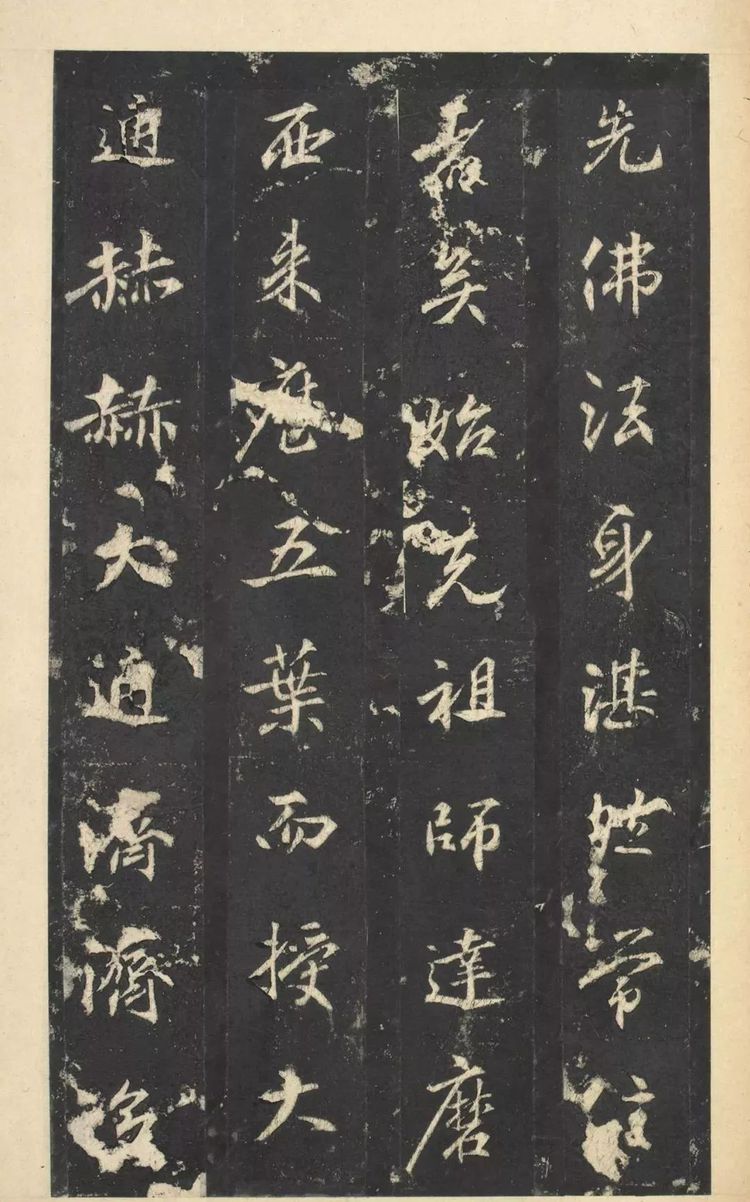 先佛法身湛然常住
矣始先祖師達磨
西來歷五葉而授大
通赫赫大通濟濟